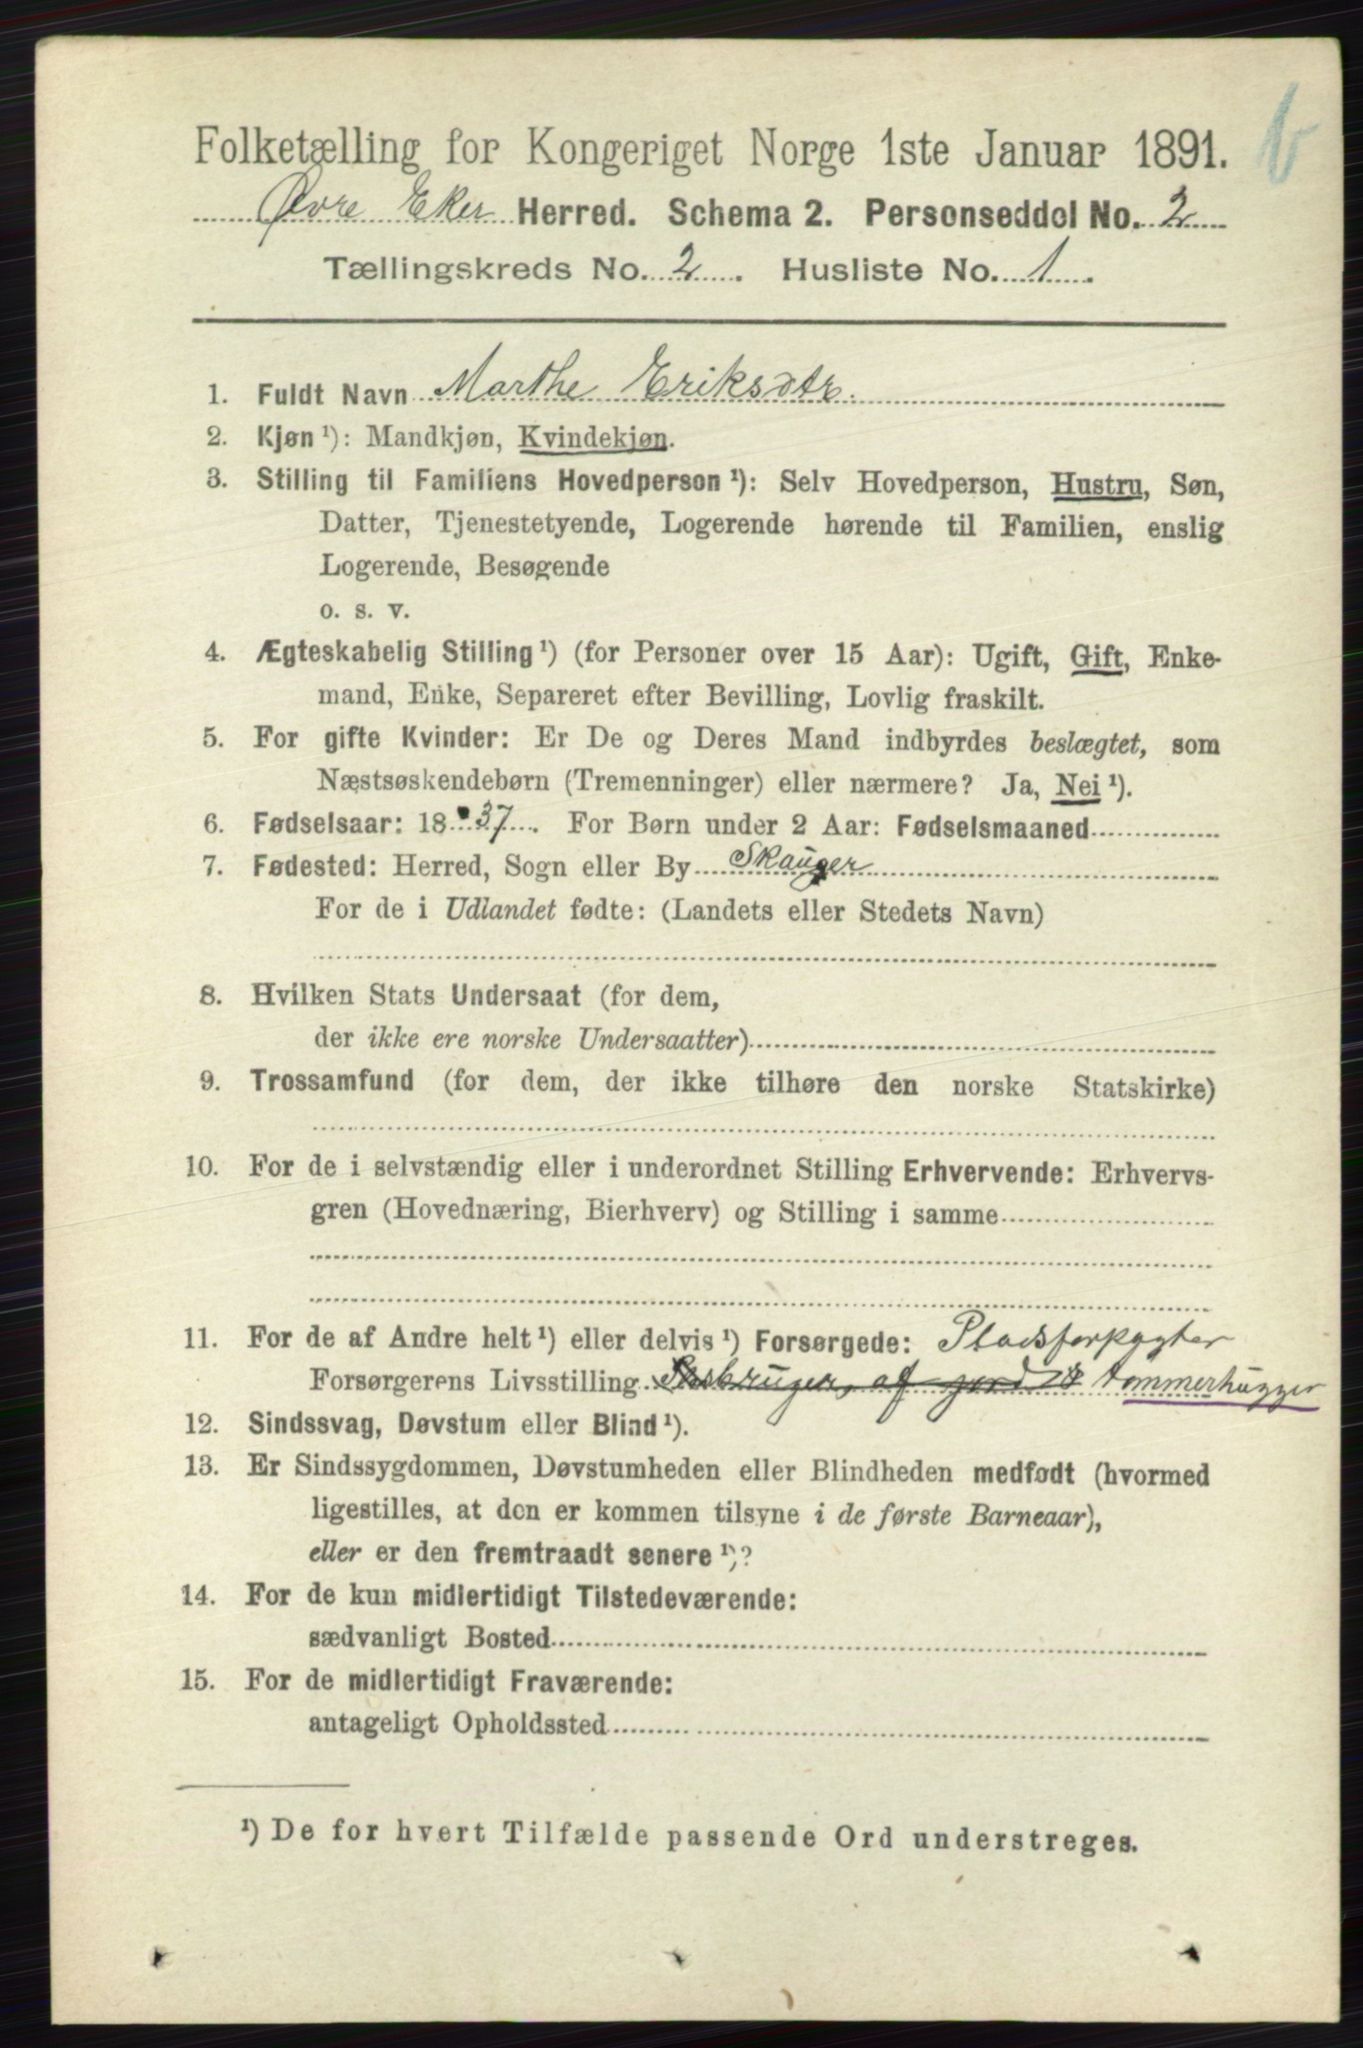 b
Folketælling for Kongeriget Norge 1ste Januar 1891.
Øvre Eker Herred. Schema 2. Personseddel No. 2
Tællingskreds No. 2. Husliste No. 1.
1. Fuldt Navn Marthe Eriksdtr.
2. Kjøn ¹): Mandkjøn, Kvindekjøn.
3. Stilling til Familiens Hovedperson ¹): Selv Hovedperson, Hustru, Søn,
Datter, Tjenestetyende, Logerende hørende til Familien, enslig
Logerende, Besøgende
o. s. v.
4. Ægteskabelig Stilling ¹) (for Personer over 15 Aar): Ugift, Gift, Enke-
mand, Enke, Separeret efter Bevilling, Lovlig fraskilt.
5. For gifte Kvinder: Er De og Deres Mand indbyrdes beslægtet, som
Næstsøskendebørn (Tremenninger) eller nærmere? Ja, Nei ¹).
6. Fødselsaar: 1837. For Børn under 2 Aar: Fødselsmaaned
7. Fødested: Herred, Sogn eller By Skauger
For de i Udlandet fødte: (Landets eller Stedets Navn)
8. Hvilken Stats Undersaat (for dem,
der ikke ere norske Undersaatter)
9. Trossamfund (for dem, der ikke tilhøre den norske Statskirke)
10. For de i selvstændig eller i underordnet Stilling Erhvervende: Erhvervs-
gren (Hovednæring, Bierhverv) og Stilling i samme
11. For de af Andre helt ¹) eller delvis ¹) Forsørgede: Pladsforpagter
Forsørgerens Livsstilling af jord tømmerhugger
12. Sindssvag, Døvstum eller Blind ¹).
13. Er Sindssygdommen, Døvstumheden eller Blindheden medfødt (hvormed
ligestilles, at den er kommen tilsyne i de første Barneaar),
eller er den fremtraadt senere ¹)?
14. For de kun midlertidigt Tilstedeværende:
sædvanligt Bosted
15. For de midlertidigt Fraværende:
antageligt Opholdssted
¹) De for hvert Tilfælde passende Ord understreges.